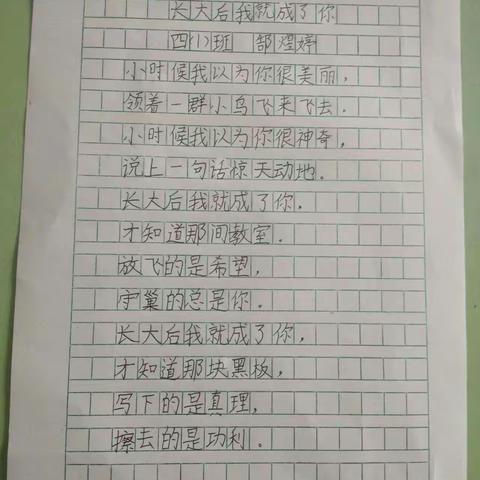 长大后我就成了你
四(1)班 郜煜婷
小时候我以为你很美丽,
领着一群小鸟飞来飞去.
小时候我以为你很神奇,
说上一句话惊天动地.
长大后我就成了你.
才知道那间教室.
放飞的是希望,
守巢的总是你.
长大后我就成了你,
才知道那块黑板,
写下的是真理,
擦去的是功利.